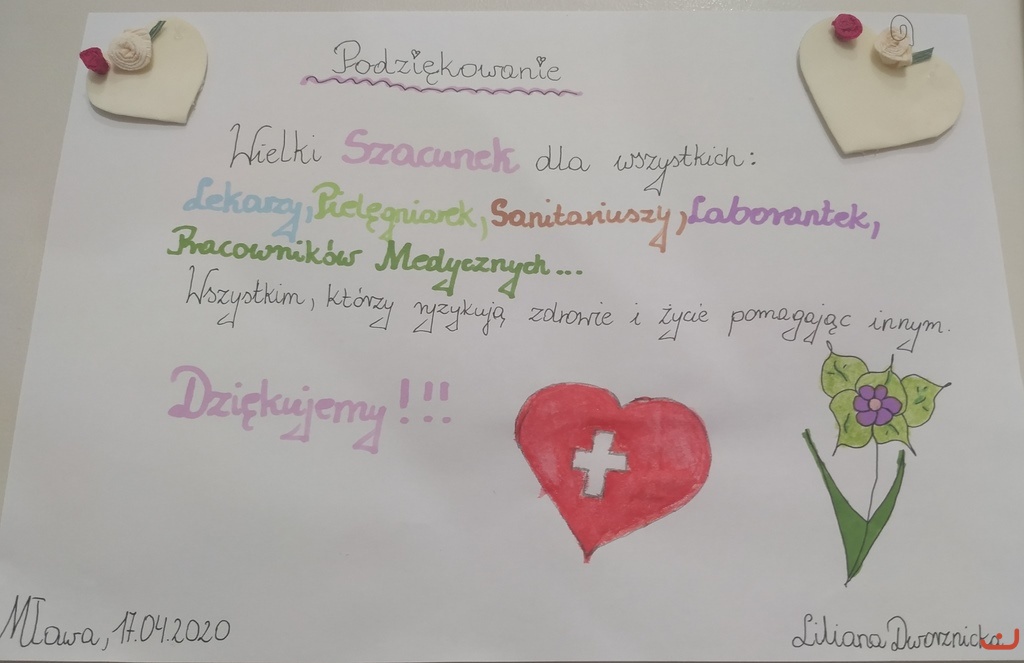 Podziękowanie
Wielki Szacunek dla wszystkich:
Lekarzy, Pielęgniarek, Sanitariuszy, Laborantek,
Pracowników Medycznych...
Wszystkim, którzy ryzykują zdrowie i życie pomagając innym.
Dziękujemy!!!
Mława, 17.04.2020
Liliana Dworznicka